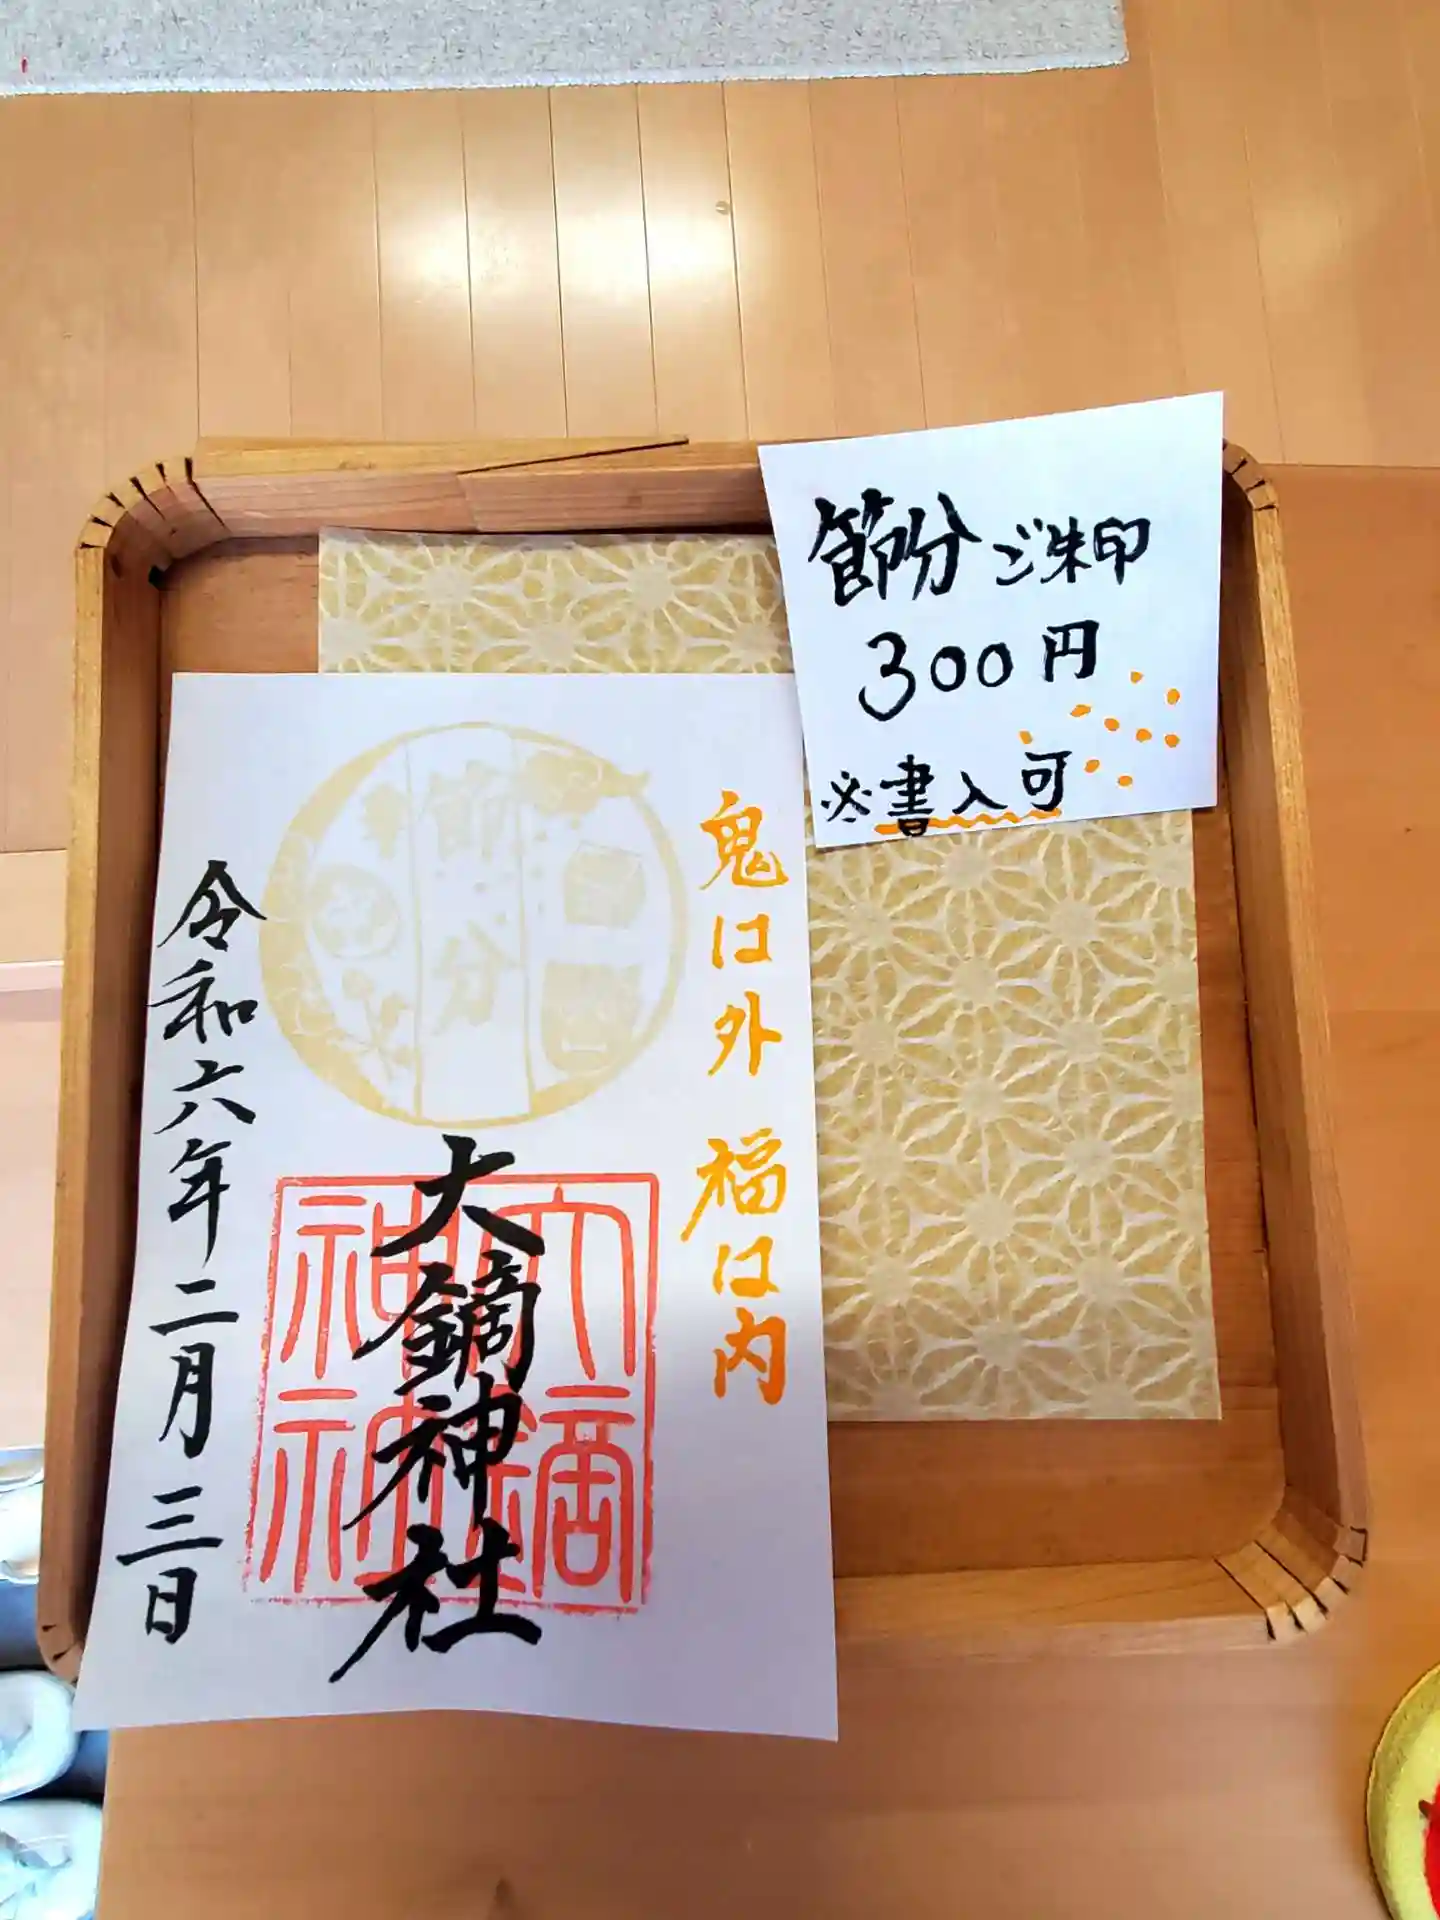 節分ご朱印
300円
※書入可
鬼は外 福は内
節分
大鏑神社
大鏑神社
令和六年二月三日